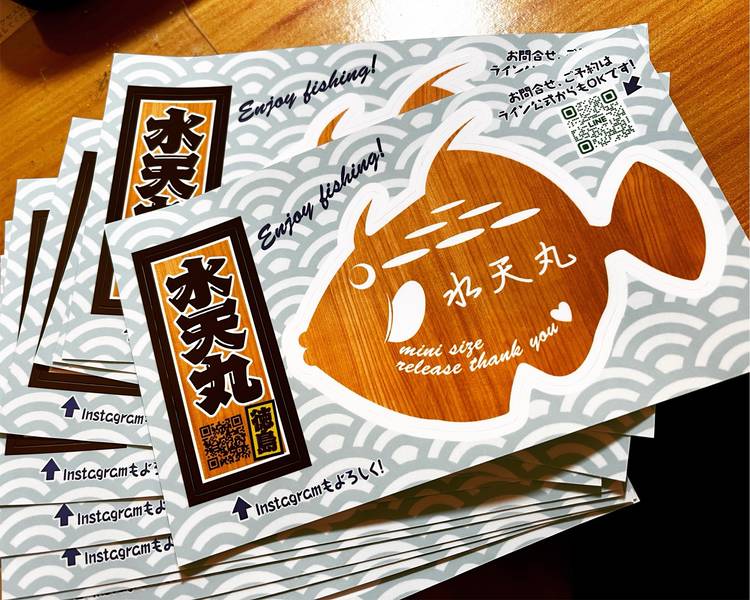 Enjoy fishing!
お問合せ、
ライン
水天
Enjoy fishing!
お問合せ、ご予約は
ライン公式からもOKです!
LINE
水天丸
徳島
水天丸
mini size
release thank you
Instagramもよろしく!
Instagram
Instagramもよ
Instagramもよ
Instagramもよ